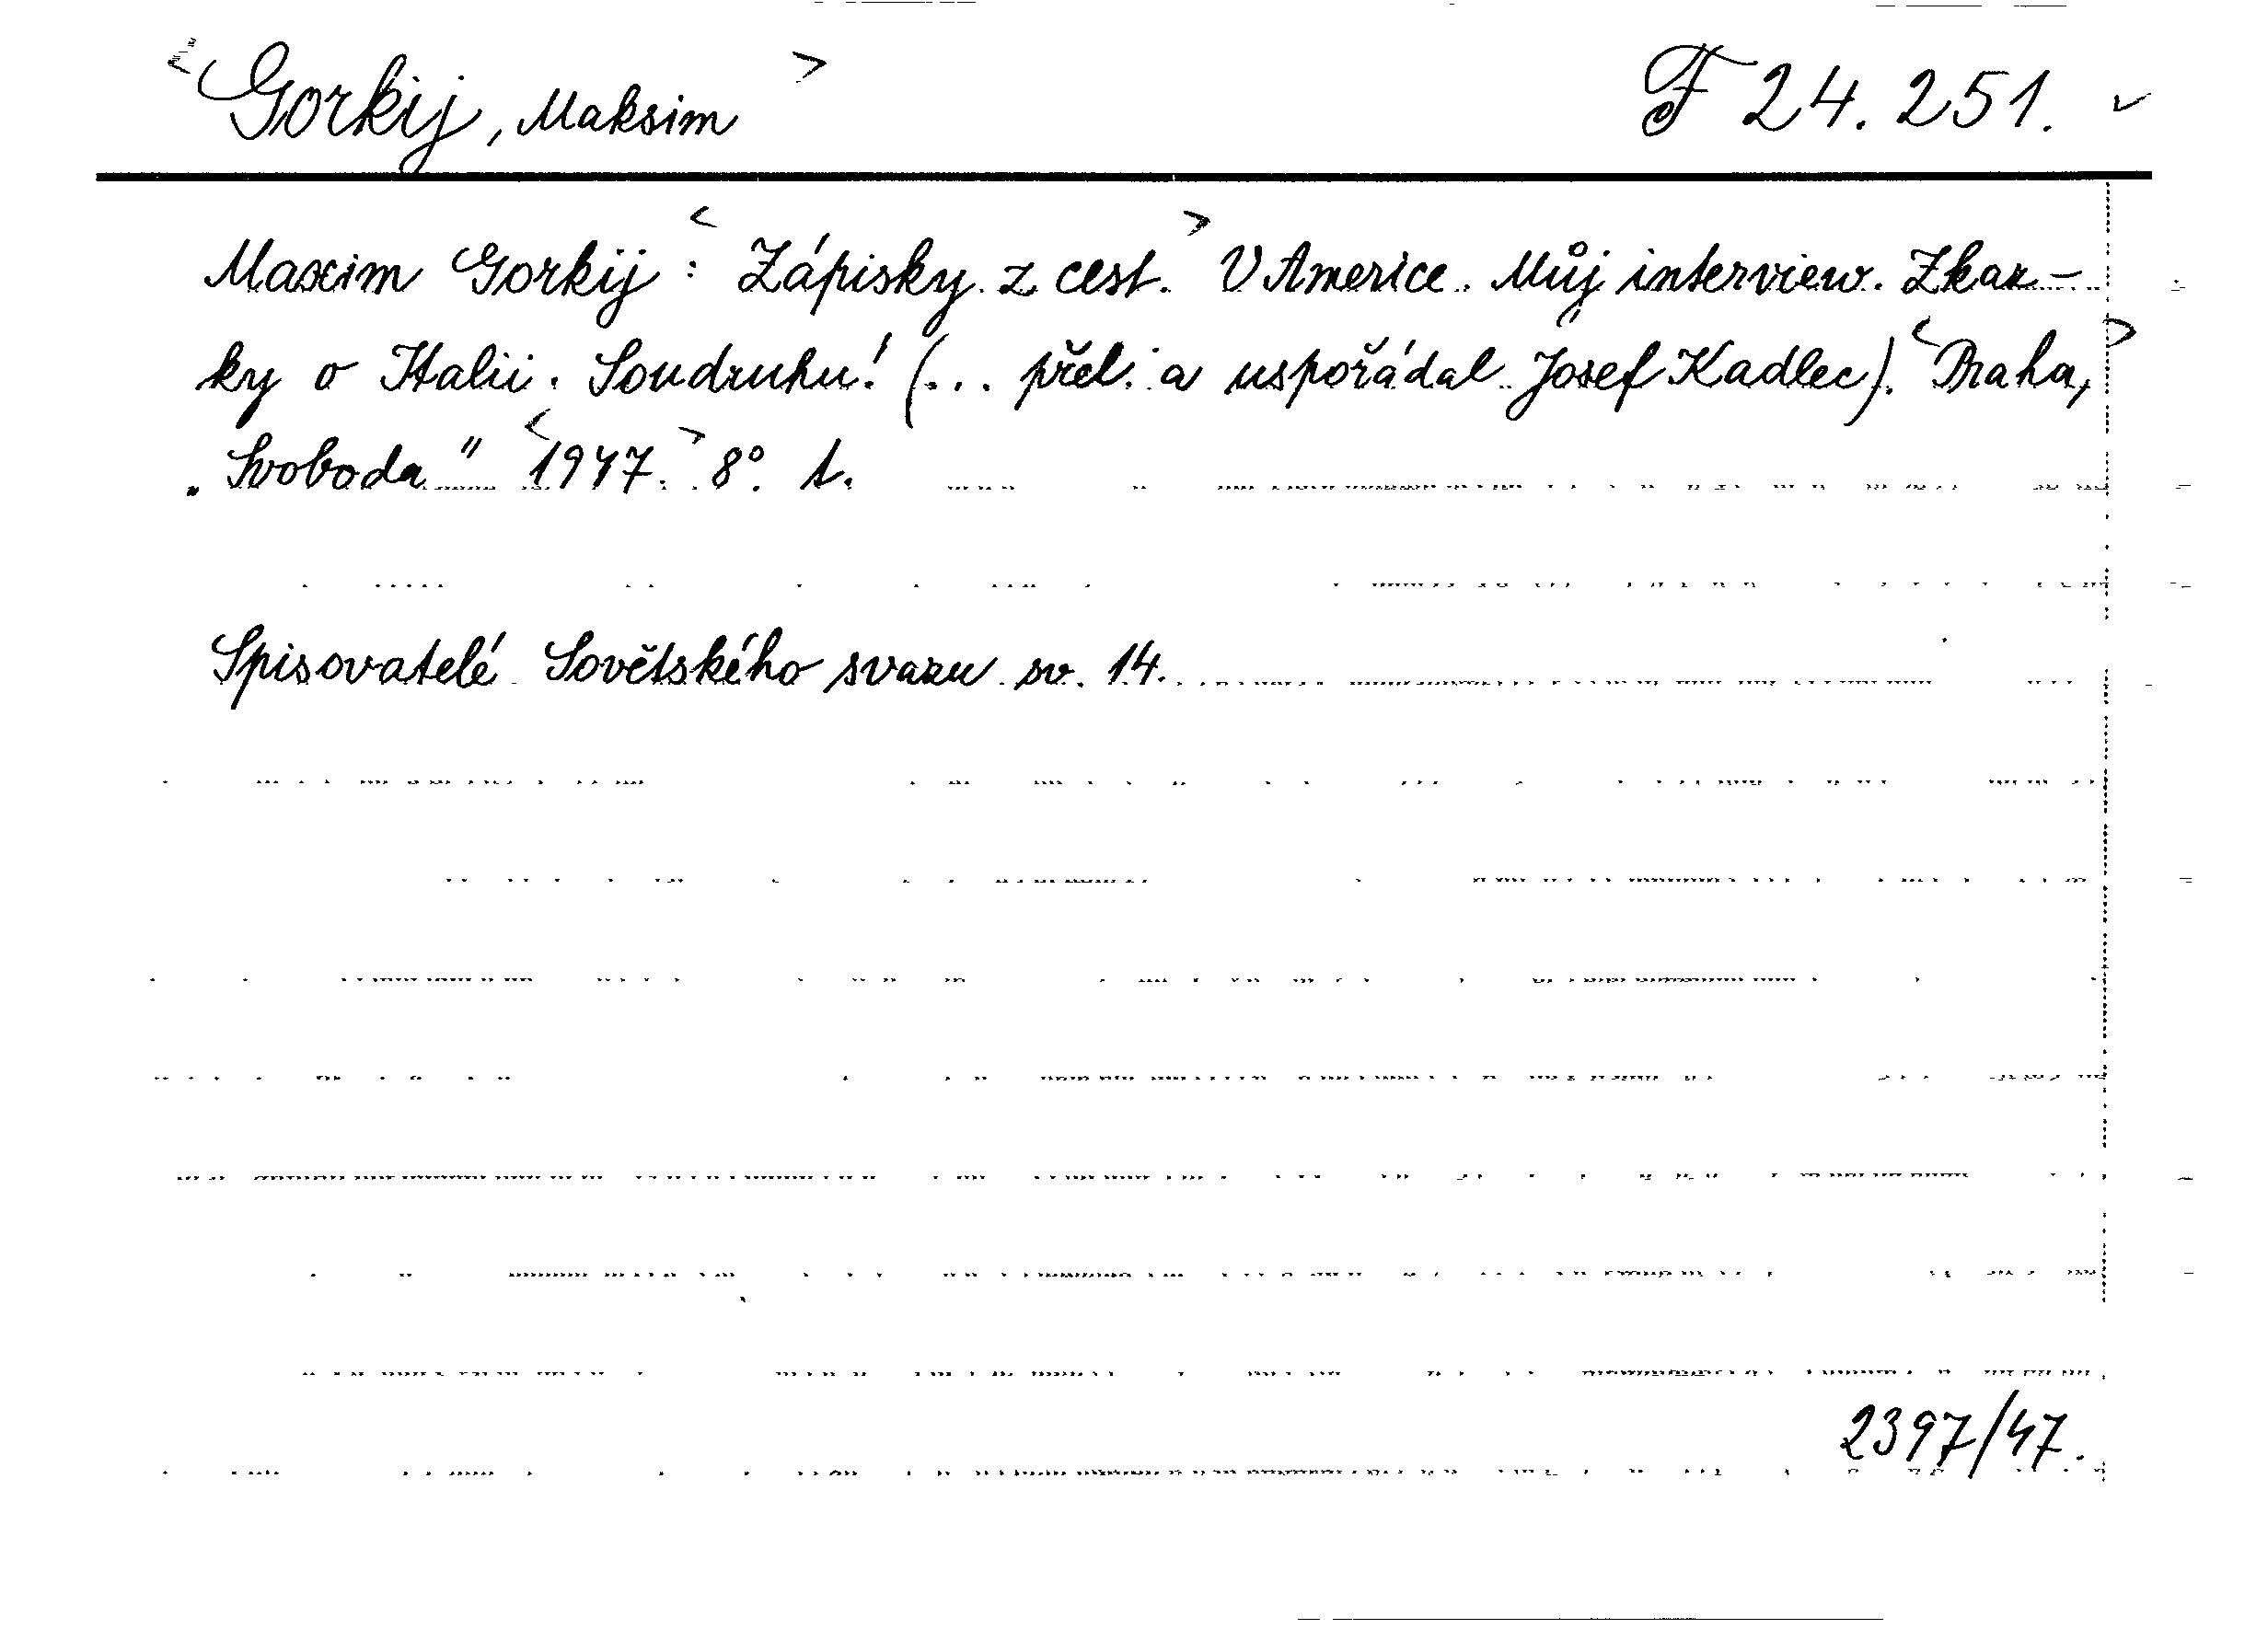 <Gorkij, Maksim> F 24.251. ✓
Maxim Gorkij: <Zápisky z cest.> V Americe. Můj interview. Zkaz-
ky o Italii. Soudruhu! (... přel. a uspořádal Josef Kadlec). <Praha,>
„Svoboda" <1947.> 8°. t.
Spisovatelé Sovětského svazu sv. 14.
2397/47.